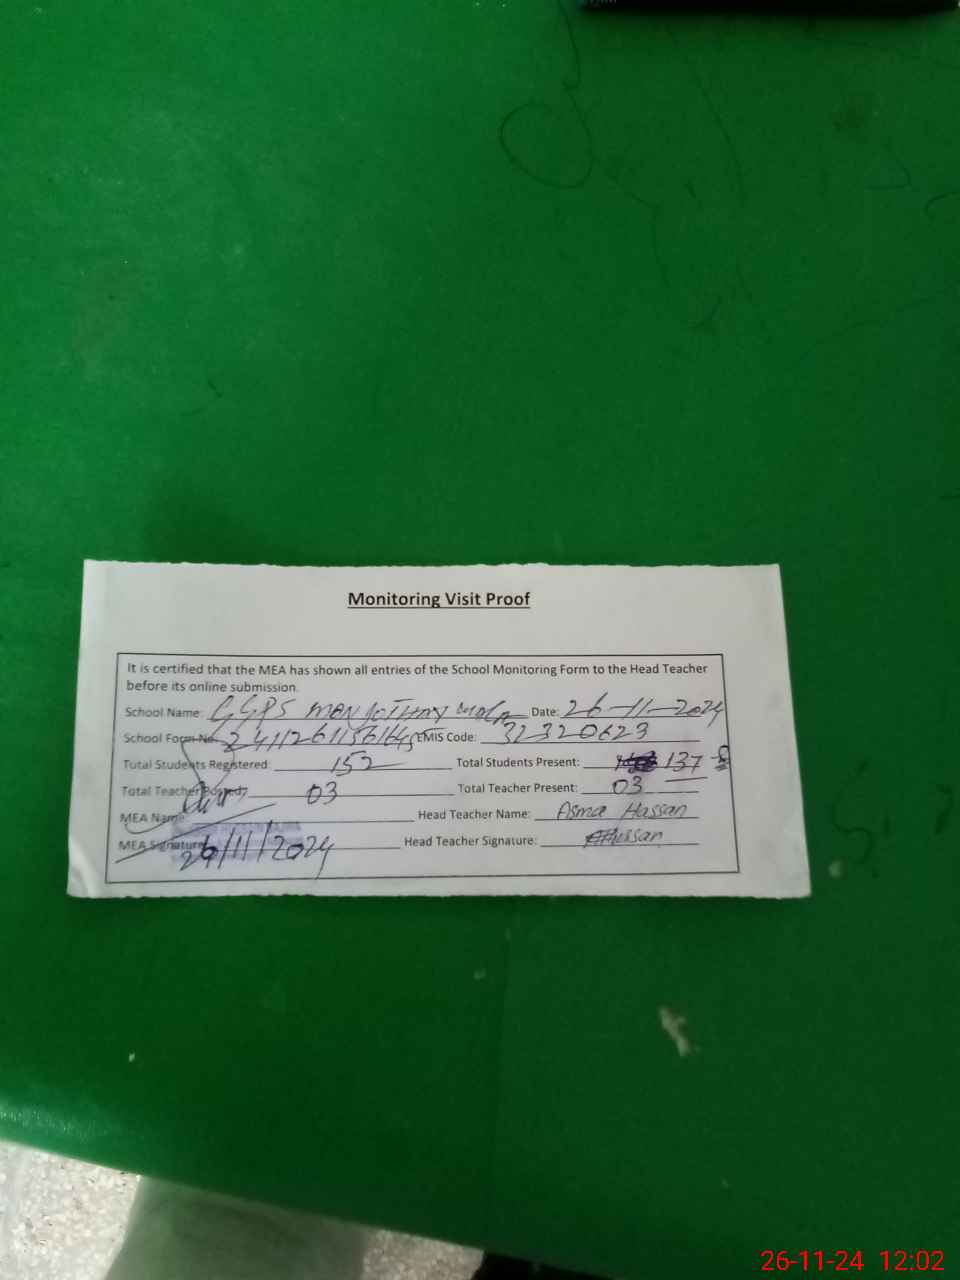 Monitoring Visit Proof
It is certified that the MEA has shown all entries of the School Monitoring Form to the Head Teacher
before its online submission.
School Name: GGPS Date: 26-11-2024
School Form No. EMIS Code: 32320623
Total Students Registered: 152 Total Students Present: 137
Total Teacher Posted: 03 Total Teacher Present: 03
MEA Name: Head Teacher Name: Asma Hassan
MEA Signature: 26/11/2024 Head Teacher Signature: AHassan
26-11-24 12:02